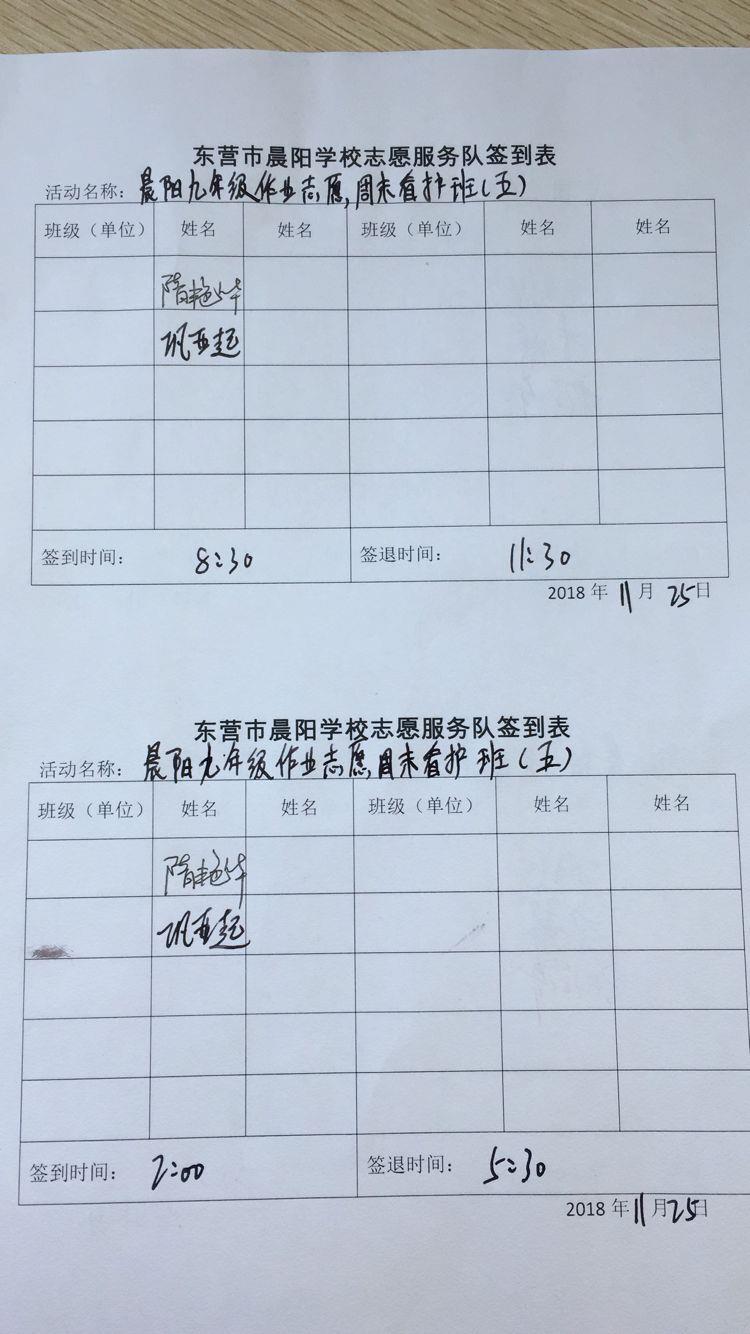 东营市晨阳学校志愿服务队签到表
活动名称：晨阳九年级作业志愿,周末看护班(五)
班级（单位） 姓名 姓名 班级（单位） 姓名 姓名
隋艳华
巩亚起
签到时间： 8:30 签退时间： 11:30
2018年11月25日
东营市晨阳学校志愿服务队签到表
活动名称：晨阳九年级作业志愿,周末看护班(五)
班级（单位） 姓名 姓名 班级（单位） 姓名 姓名
隋艳华
巩亚起
签到时间： 2:00 签退时间： 5:30
2018年11月25日